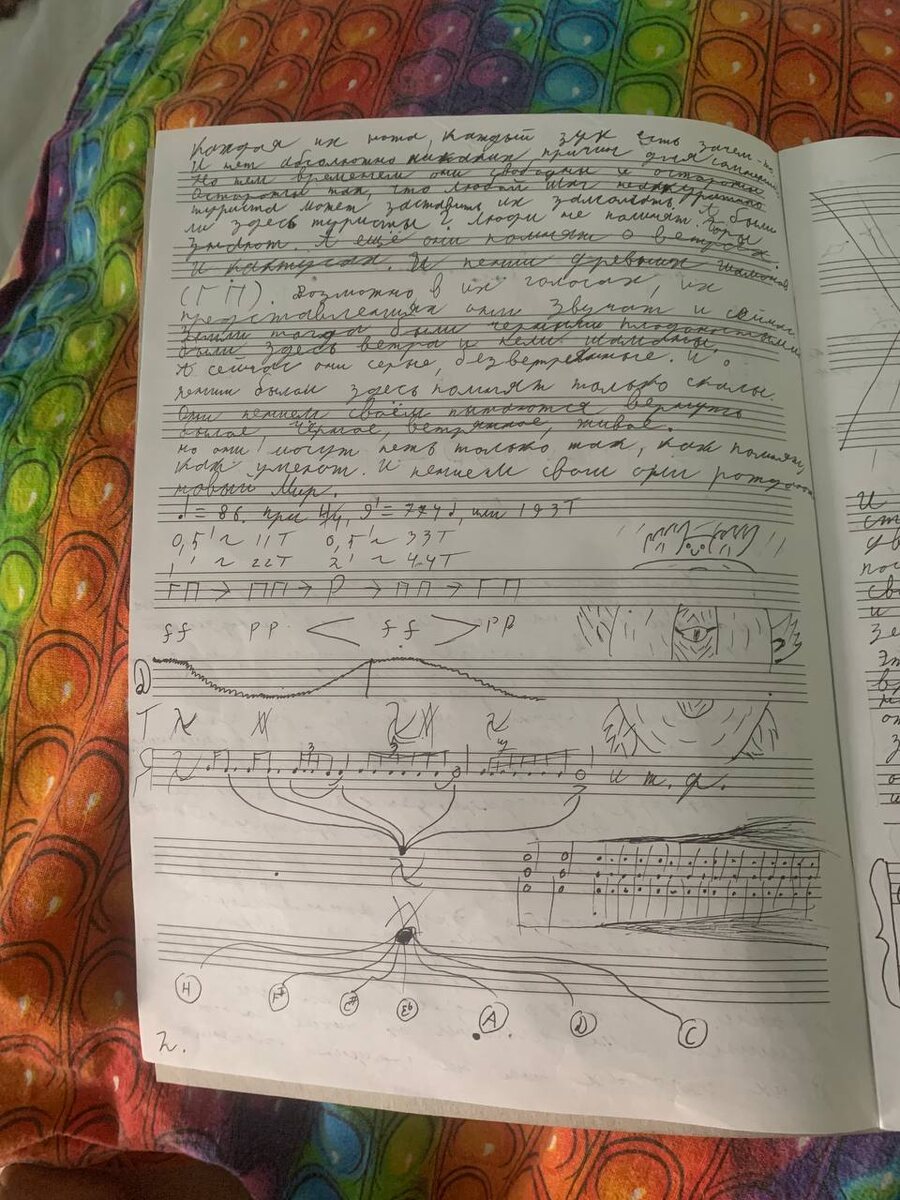 Каждая их нота, каждый звук есть зачем-то.
И нет абсолютно никаких причин для
Но тем временем они свободны и осторожны.
Осторожны так, что любой шаг
туриста может заставить их замолчать. А были
ли здесь туристы? Люди не помнят. Горы
знают. А ещё они помнят о ветрах.
И кактусах. И пении древних шаманов
(ГП). Возможно в их голосах, их
представлениях они звучат и сейчас.
Земли тогда были черными плодоносными
были здесь ветра и пели шаманы.
А сейчас они серые, безветренные. И
пении былой здесь помнят только скалы.
Они пением своём пытаются вернуть
былое, чёрное, ветрянное, живое.
но они могут петь только так, как помнят,
как умеют. И пением свои они
новый Мир.
♩ = 86. при 4/4, 9' = 774♩, или 193Т
0,5' ~ 11Т 0,5' ~ 33Т
1' ~ 22Т 2' ~ 44Т
ГП → ПП → Р → ПП → ГП
ff pp < ff > pp
Д
Т
Я 3 3 и т. д.
H F# C# Eb A D C
2.